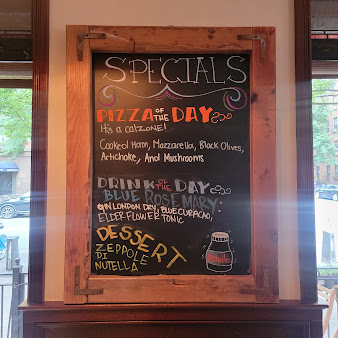 SPECIALS
PIZZA OF THE DAY
It's a calzone!
Cooked Ham, Mozzarella, Black Olives,
Artichoke, And Mushrooms
DRINK OF THE DAY
BLUE ROSEMARY:
GIN LONDON DRY, BLUE CURACAO,
ELDERFLOWER TONIC
DESSERT
ZEPPOLE
DI
NUTELLA
nutella